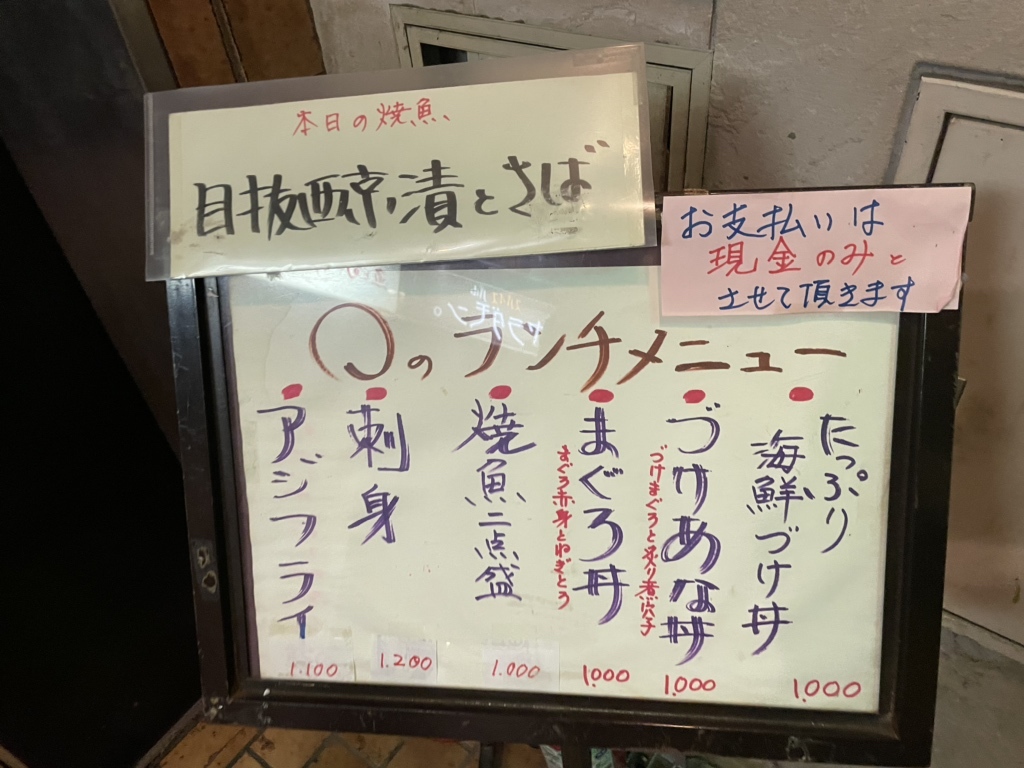 本日の焼魚
目抜西京漬とさば
お支払いは
現金のみと
させて頂きます
〇のランチメニュー
たっぷり
海鮮づけ丼
1.000
づけあな丼
づけまぐろと炙り煮穴子
1.000
まぐろ丼
まぐろ赤身とねぎとろ
1.000
焼魚二点盛
1.000
刺身
1.200
アジフライ
1.100